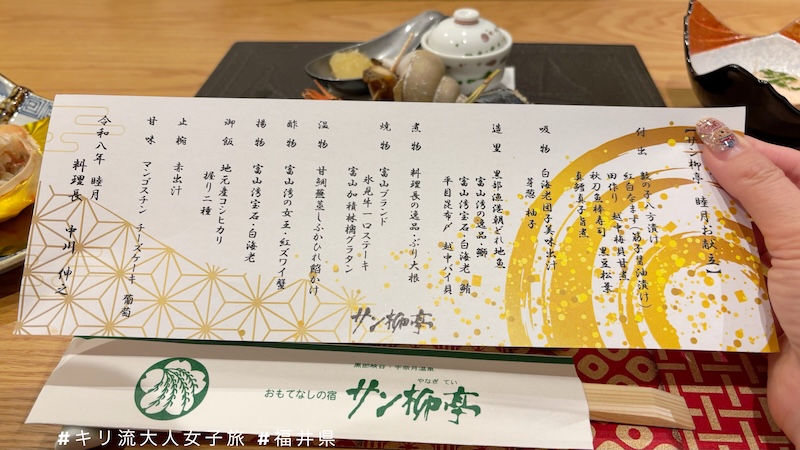 【サン柳亭 睦月お献立】
付出 数の子八方漬け
紅白なます(筋子醤油漬け)
田作り 越中梅貝甘煮
秋刀魚棒寿司 黒豆松葉
真鱈真子旨煮
吸物 白海老団子美味出汁
芽葱 柚子
造里 黒部漁港朝どれ地魚
富山湾の逸品・鰤
富山湾宝石・白海老 鮪
平目昆布〆 越中バイ貝
煮物 料理長の逸品・ぶり大根
焼物 富山ブランド
氷見牛一口ステーキ
富山加積林檎グラタン
温物 甘鯛蕪蒸しふかひれ餡かけ
酢物 富山湾の女王・紅ズワイ蟹
揚物 富山湾宝石・白海老
御飯 地元産コシヒカリ
握り二種
止椀 赤出汁
甘味 マンゴスチン チーズケーキ 葡萄
令和八年 睦月
料理長 中川 伸之
サン柳亭
黒部峡谷・宇奈月温泉
おもてなしの宿
やなぎ てい
サン柳亭
#キリ流大人女子旅 #福井県